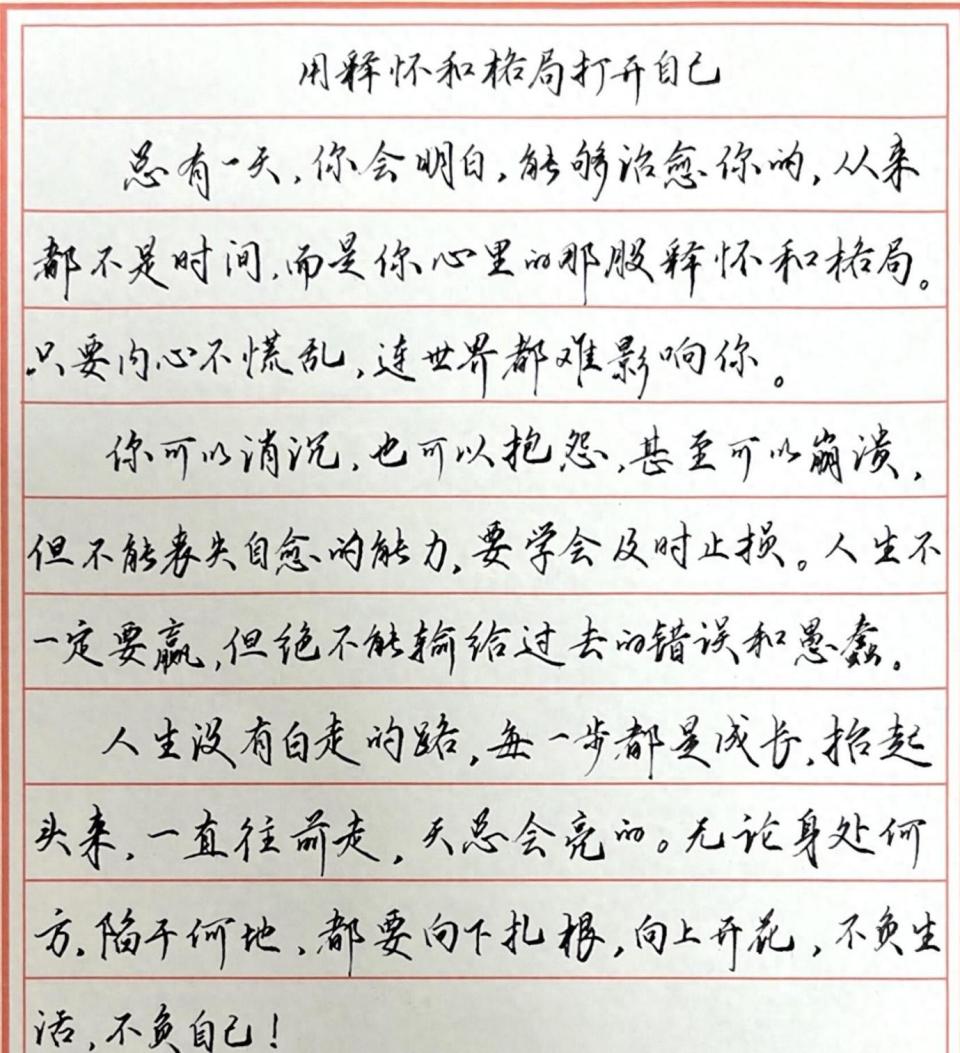 用释怀和格局打开自己
总有一天，你会明白，能够治愈你的，从来
都不是时间，而是你心里的那股释怀和格局。
只要内心不慌乱，连世界都难影响你。
你可以消沉，也可以抱怨，甚至可以崩溃，
但不能丧失自愈的能力，要学会及时止损。人生不
一定要赢，但绝不能输给过去的错误和愚蠢。
人生没有白走的路，每一步都是成长，抬起
头来，一直往前走，天总会亮的。无论身处何
方，陷于何地，都要向下扎根，向上开花，不负生
活，不负自己！